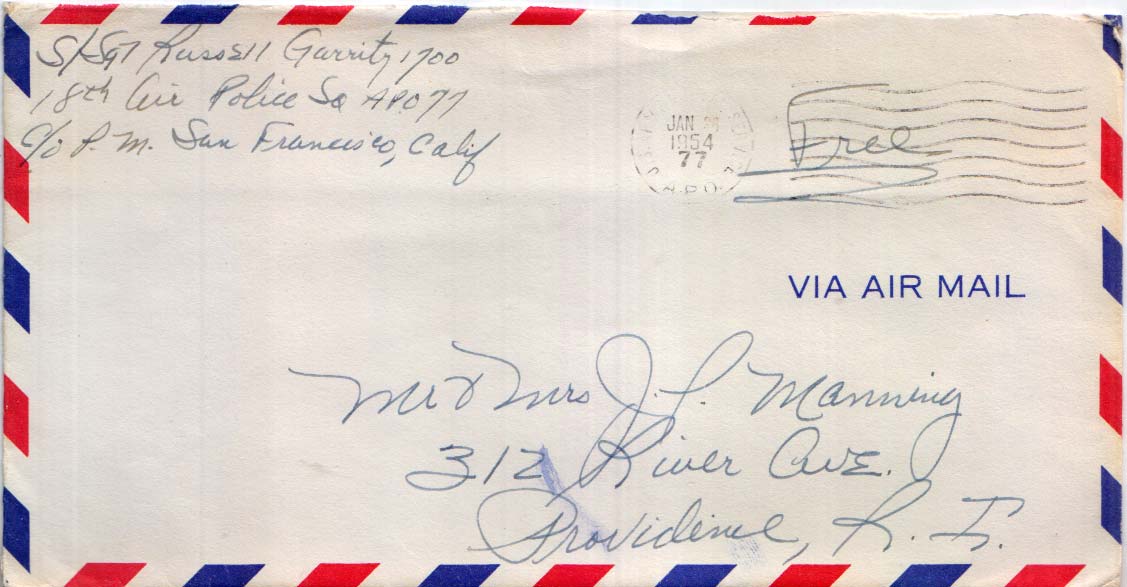 S/Sgt Russell Garrity 1700
18th Air Police Sq APO 77
c/o P.M. San Francisco, Calif
JAN
1954
77
A.P.O.
Free
VIA AIR MAIL
Mr & Mrs J. L. Manning
312 River Ave.
Providence, R. I.